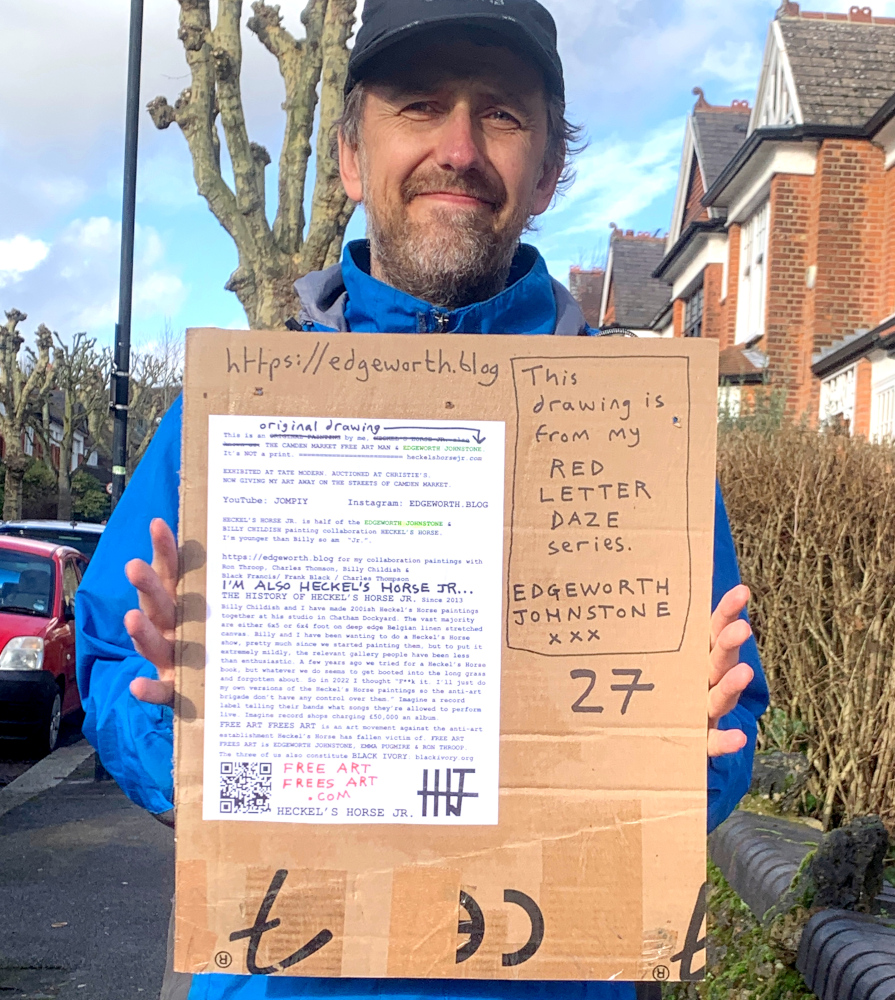 https://edgeworth.blog
This
drawing is
from my
RED
LETTER
DAZE
series.
EDGEWORTH
JOHNSTONE
xxx
27
original drawing
This is an ORIGINAL PAINTING by me, HECKEL'S HORSE JR. also
THE CAMDEN MARKET FREE ART MAN & EDGEWORTH JOHNSTONE.
It's NOT a print. heckelshorsejr.com
EXHIBITED AT TATE MODERN. AUCTIONED AT CHRISTIE'S.
NOW GIVING MY ART AWAY ON THE STREETS OF CAMDEN MARKET.
YouTube: JOMPIY Instagram: EDGEWORTH.BLOG
HECKEL'S HORSE JR. is half of the EDGEWORTH JOHNSTONE &
BILLY CHILDISH painting collaboration HECKEL'S HORSE.
I'm younger than Billy so am "Jr.".
https://edgeworth.blog for my collaboration paintings with
Ron Throop, Charles Thomson, Billy Childish &
Black Francis/ Frank Black / Charles Thompson
I'M ALSO HECKEL'S HORSE JR...
THE HISTORY OF HECKEL'S HORSE JR. Since 2013
Billy Childish and I have made 200ish Heckel's Horse paintings
together at his studio in Chatham Dockyard. The vast majority
are either 6x5 or 6x4 foot on deep edge Belgian linen stretched
canvas. Billy and I have been wanting to do a Heckel's Horse
show, pretty much since we started painting them, but to put it
extremely mildly, the relevant gallery people have been less
than enthusiastic. A few years ago we tried for a Heckel's Horse
book, but whatever we do seems to get booted into the long grass
and forgotten about. So in 2022 I thought "F**k it. I'll just do
my own versions of the Heckel's Horse paintings so the anti-art
brigade don't have any control over them." Imagine a record
label telling their bands what songs they're allowed to perform
live. Imagine record shops charging £50,000 an album.
FREE ART FREES ART is an art movement against the anti-art
establishment Heckel's Horse has fallen victim of. FREE ART
FREES ART is EDGEWORTH JOHNSTONE, EMMA PUGMIRE & RON THROOP.
The three of us also constitute BLACK IVORY. blackivory.org
FREE ART
FREES ART
.COM
HECKEL'S HORSE JR.